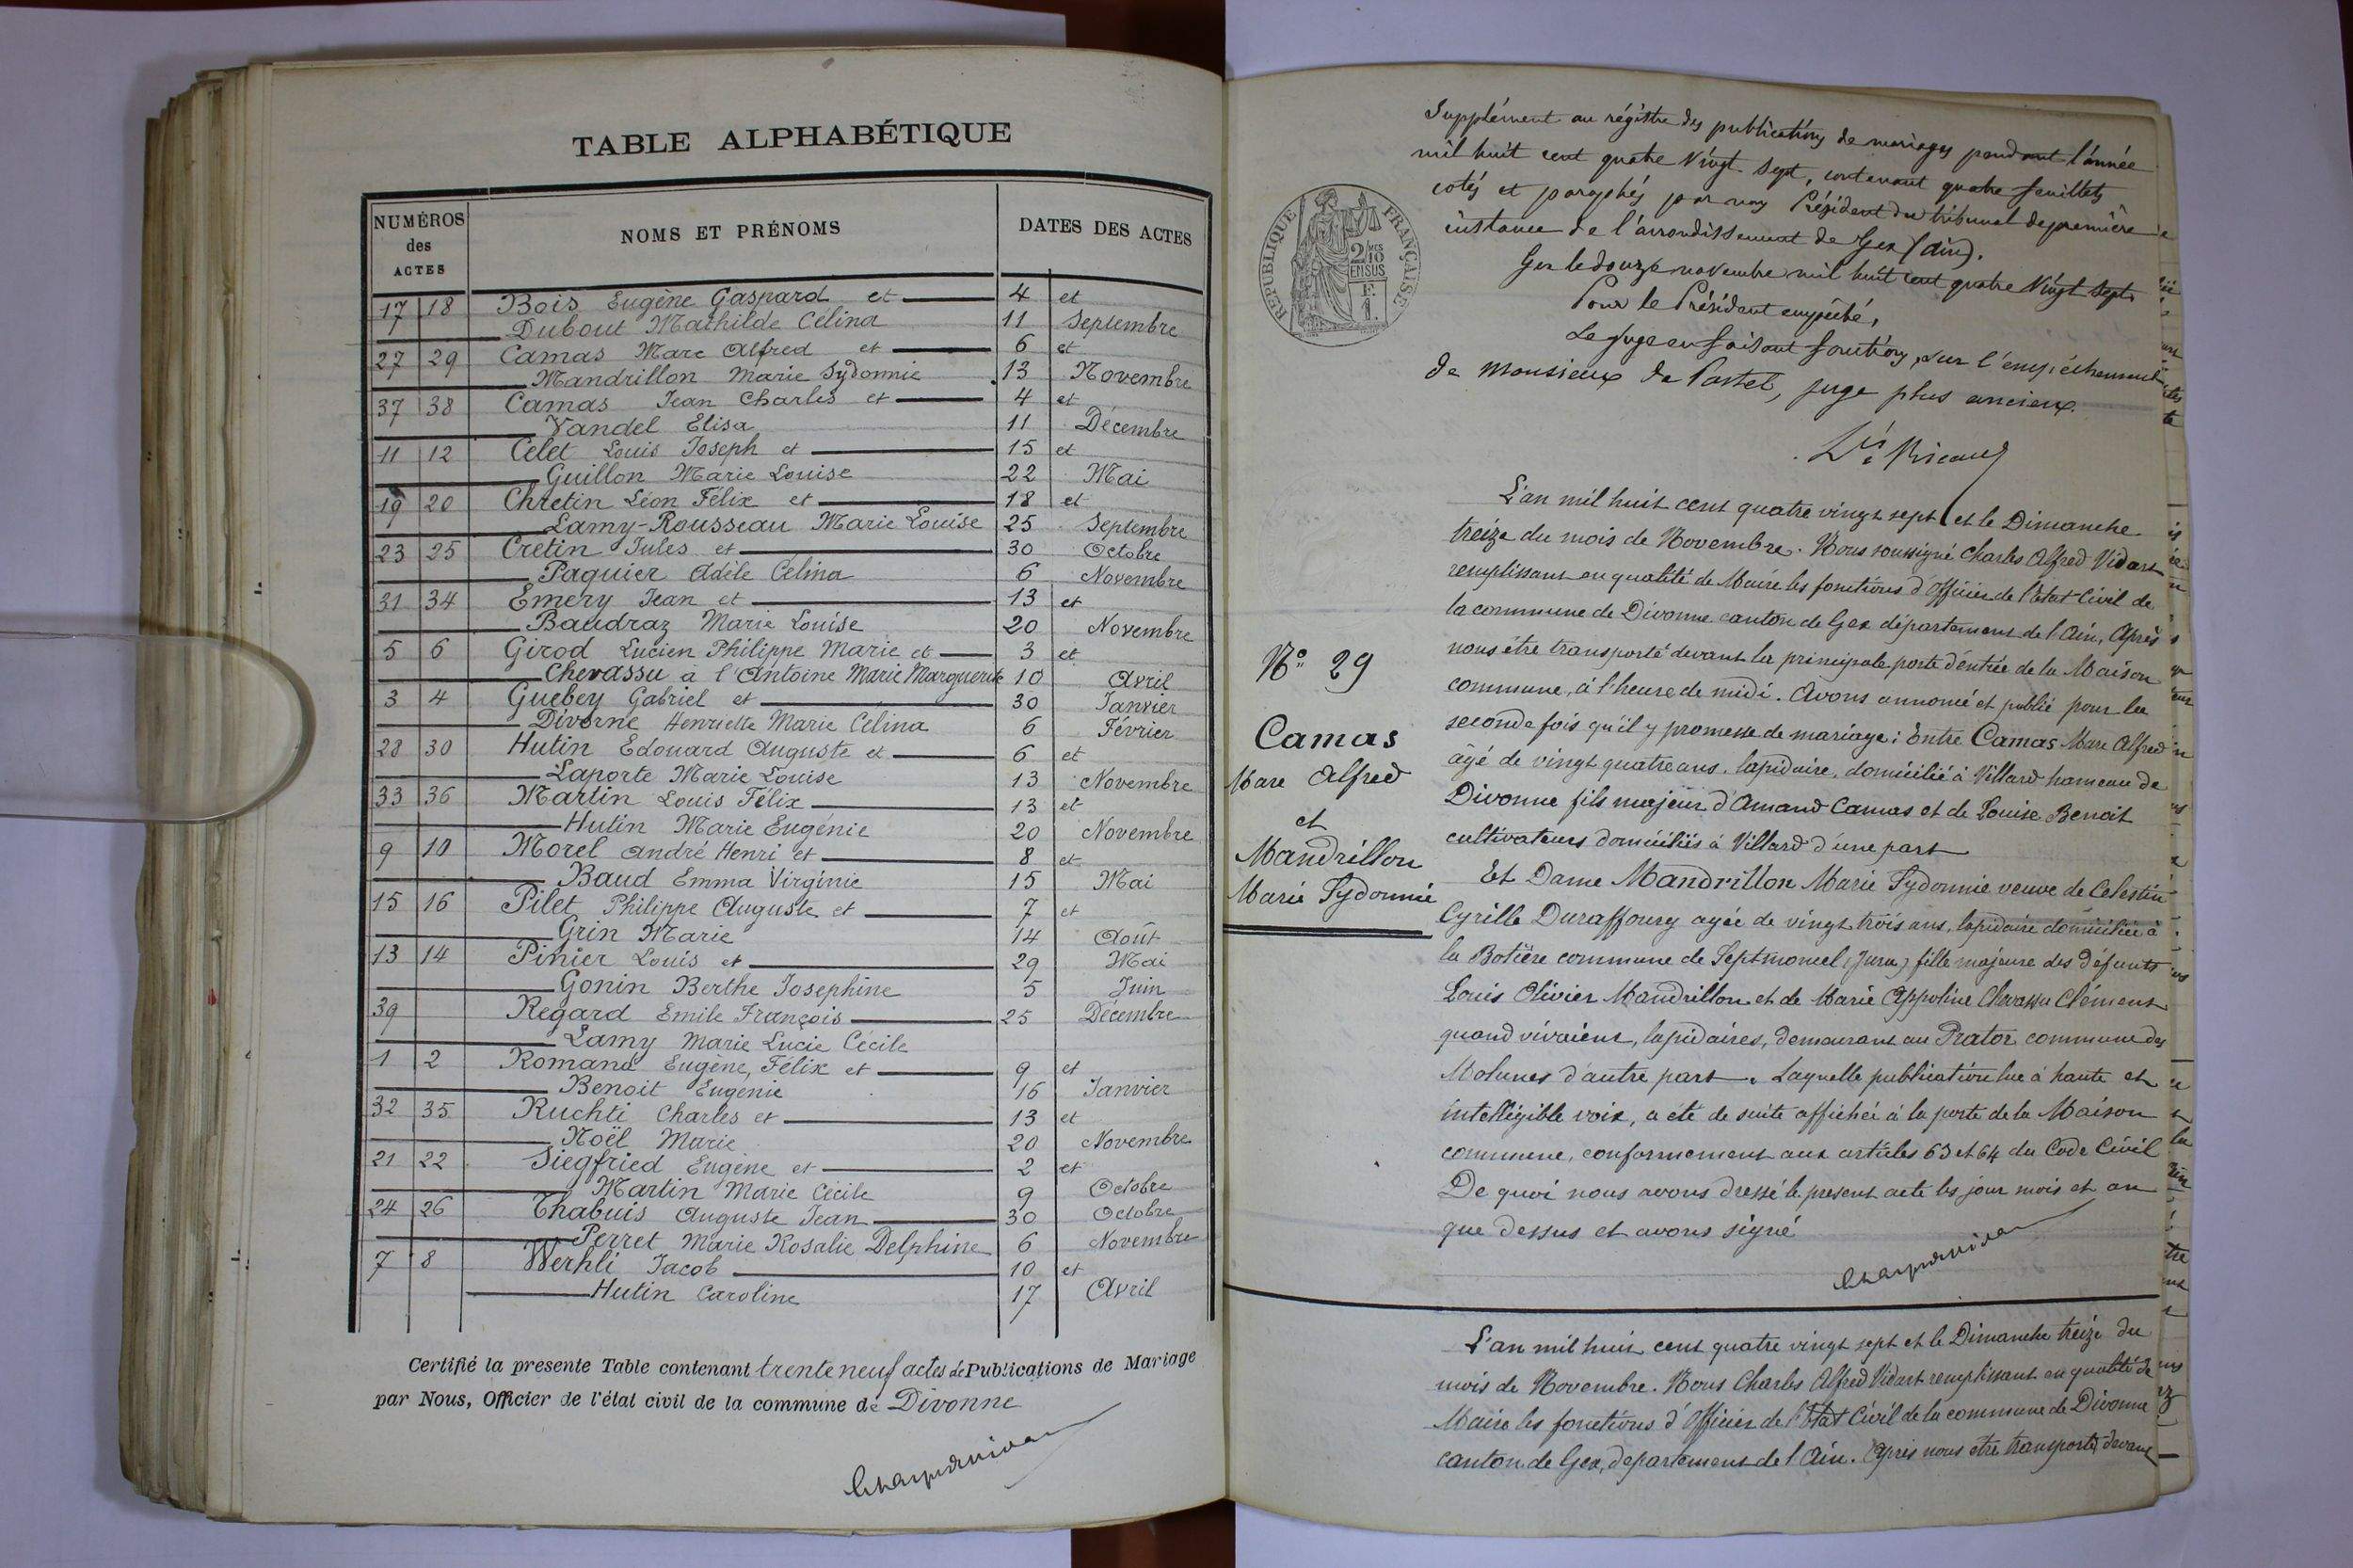 TABLE ALPHABÉTIQUE
NUMÉROS des ACTES
NOMS ET PRÉNOMS
DATES DES ACTES
17 18 Bois Eugène Gaspard et 4 et
Dubout Mathilde Célina 11 Septembre
27 29 Camas Marc Alfred et 6 et
Mandrillon Marie Sydonnie 13 Novembre
37 38 Camas Jean Charles et 4 et
Vandel Elisa 11 Décembre
11 12 Célet Louis Joseph et 15 et
Guillon Marie Louise 22 Mai
19 20 Chrétin Léon Félix et 18 et
Lamy-Rousseau Marie Louise 25 Septembre
23 25 Crétin Jules et 30 Octobre
Paquier Adèle Célina 6 Novembre
31 34 Emery Jean et 13 et
Baudraz Marie Louise 20 Novembre
5 6 Girod Lucien Philippe Marie et 3 et
Chevassu à l'Antoine Marie Marguerite 10 Avril
3 4 Guebey Gabriel et 30 Janvier
Divorne Henriette Marie Célina 6 Février
28 30 Hutin Edouard Auguste et 6 et
Laporte Marie Louise 13 Novembre
33 36 Martin Louis Félix 13 et
Hutin Marie Eugénie 20 Novembre
9 10 Morel André Henri et 8 et
Baud Emma Virginie 15 Mai
15 16 Pilet Philippe Auguste et 7 et
Grin Marie 14 Août
13 14 Pinier Louis et 29 Mai
Gonin Berthe Josephine 5 Juin
39 Regard Emile François 25 Décembre
Lamy Marie Lucie Cécile
1 2 Romand Eugène, Félix et 9 et
Benoit Eugénie 16 Janvier
32 35 Ruchti Charles et 13 et
Noël Marie 20 Novembre
21 22 Siegfried Eugène et 2 et
Martin Marie Cécile 9 Octobre
24 26 Thabuis Auguste Jean 30 Octobre
Perret Marie Rosalie Delphine 6 Novembre
7 8 Werhli Jacob 10 et
Hutin Caroline 17 Avril
Certifié la presente Table contenant trente neuf actes de Publications de Mariage
par Nous, Officier de l'état civil de la commune de Divonne
Supplément au régistre des publications de mariages pendant l'année
mil huit cent quatre Vingt sept, contenant quatre feuillets
cotés et paraphés par nous Président du tribunal de première
instance de l'arrondissement de Gex (ain).
Gex le douze novembre mil huit cent quatre Vingt sept
Pour le Président empêché,
Le Juge en faisant fonctions, sur l'empêchement
de Monsieur de Pastel, juge plus ancien.
RÉPUBLIQUE FRANÇAISE
2/10 EN SUS
F. 1.
L'an mil huit cent quatre vingt sept et le Dimanche
treize du mois de Novembre. Nous soussigné Charles Alfred Vidart
remplissant en qualité de Maire les fonctions d'officier de l'Etat Civil de
la commune de Divonne canton de Gex département de l'Ain, Après
nous être transporté devant la principale porte d'entrée de la Maison
commune, à l'heure de midi. Avons annoncé et publié pour la
seconde fois qu'il y promesse de mariage : Entre Camas Marc Alfred
âgé de vingt quatre ans, lapidaire, domicilié à Villard hameau de
Divonne fils majeur d'Amand Camas et de Louise Benoit
cultivateurs domiciliés à Villard d'une part
Et Dame Mandrillon Marie Sydonnie veuve de Celestin
Cyrille Duraffourg agée de vingt trois ans, lapidaire domiciliée à
la Botière commune de Septmoncel (Jura) fille majeure des défunts
Louis Olivier Mandrillon et de Marie Appoline Chevassu Clément
quand vivaient, lapidaires, demeurant au Prator commune des
Molunes d'autre part. Laquelle publication lue à haute et
intelligible voix, a été de suite affichée à la porte de la Maison
commune, conformement aux articles 63 et 64 du Code Civil
De quoi nous avons dressé le present acte les jour mois et an
que dessus et avons signé
N° 29
Camas
Marc Alfred
et
Mandrillon
Marie Sydonnie
L'an mil huit cent quatre vingt sept et le Dimanche treize du
mois de Novembre. Nous Charles Alfred Vidart remplissant en qualité de
Maire les fonctions d'Officier de l'Etat Civil de la commune de Divonne
canton de Gex, departement de l'Ain. Après nous etre transporté devant